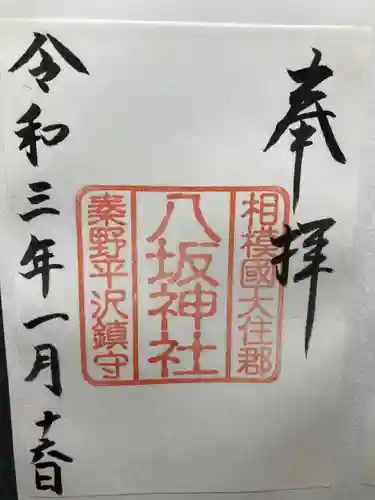 奉拝
相模國大住郡
八坂神社
秦野平沢鎮守
令和三年一月十六日